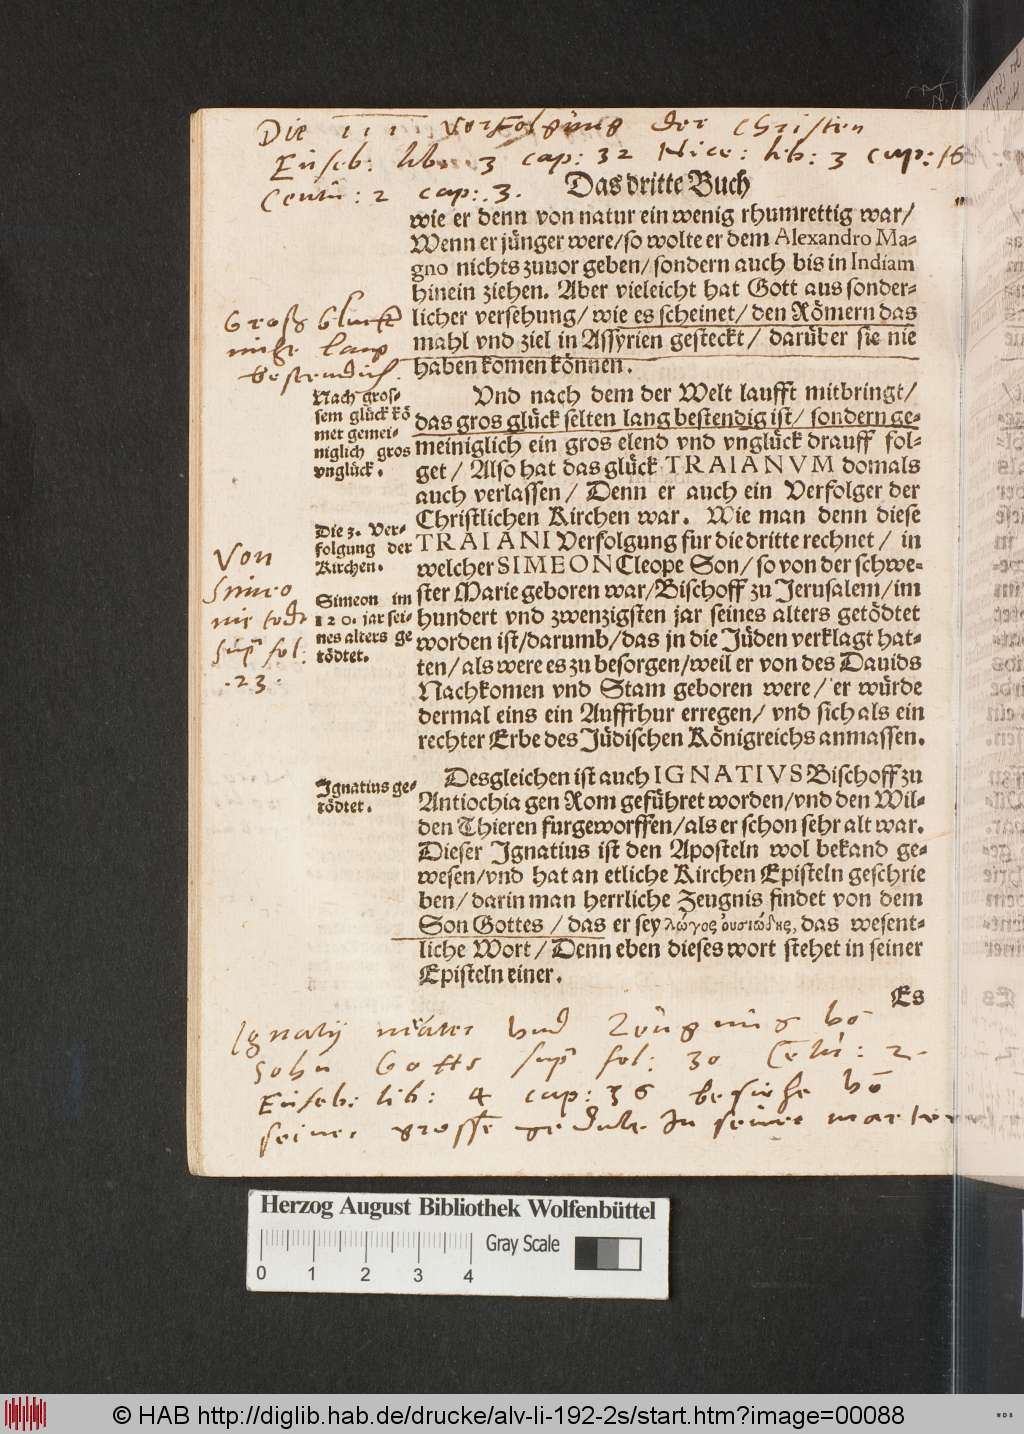 Die iii verfolgung der Christen
Euseb: lib: 3 cap: 32 Nice: lib: 3 cap: 16
Centu: 2 cap: 3.
Das dritte Buch
wie er denn von natur ein wenig rhumrettig war/
Wenn er jünger were/so wolte er dem Alexandro Ma-
gno nichts zuuor geben/sondern auch bis in Indiam
hinein ziehen. Aber vieleicht hat Gott aus sonder-
licher versehung/ wie es scheinet/ den Römern das
mahl vnd ziel in Assyrien gesteckt/ darüber sie nie
haben komen können.
Groß Gluck
nicht lang
bestendich.
Nach gros-
sem glück kö
met gemei-
niglich gros
vnglück.
Vnd nach dem der Welt laufft mitbringt/
das gros glück selten lang bestendig ist/ sondern ge-
meiniglich ein gros elend vnd vnglück drauff fol-
get/ Also hat das glück TRAIANVM domals
auch verlassen/ Denn er auch ein Verfolger der
Christlichen Kirchen war. Wie man denn diese
TRAIANI Verfolgung fur die dritte rechnet/ in
welcher SIMEON Cleope Son/ so von der schwe-
ster Marie geboren war/Bischoff zu Jerusalem/im
hundert vnd zwenzigsten jar seines alters getödtet
worden ist/darumb/das jn die Jüden verklagt hat-
ten/als were es zu besorgen/weil er von des Dauids
Nachkomen vnd Stam geboren were/ er würde
dermal eins ein Auffrhur erregen/ vnd sich als ein
rechter Erbe des Jüdischen Königreichs anmassen.
Die 3. Ver-
folgung der
Kirchen.
Simeon im
120. jar sei-
nes alters ge
tödtet.
Von
fol:
.23.
Desgleichen ist auch IGNATIVS Bischoff zu
Antiochia gen Rom geführet worden/vnd den Wil-
den Thieren furgeworffen/als er schon sehr alt war.
Dieser Ignatius ist den Aposteln wol bekand ge-
wesen/vnd hat an etliche Kirchen Episteln geschrie
ben/darin man herrliche Zeugnis findet von dem
Son Gottes/das er sey λώγος ὀυσιώδης, das wesent-
liche Wort/ Denn eben dieses wort stehet in seiner
Episteln einer.
Ignatius ge-
tödtet.
Es
Ignatij marter Vnd Zeugnus vō
Sohn Gotts sup fol: 30 Cētu: 2.
Euseb: lib: 4 cap: 36 besiehe vō
seiner grosse gedult In seiner marter
Herzog August Bibliothek Wolfenbüttel
Gray Scale
0 1 2 3 4
© HAB http://diglib.hab.de/drucke/alv-li-192-2s/start.htm?image=00088